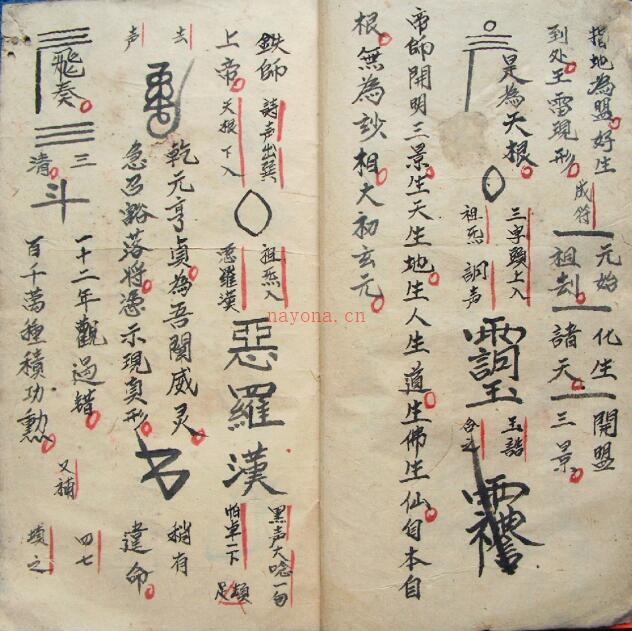 指地為盟好生
到处王雷現形
成符
元始
祖劫
化生
諸天
開盟
三景
是為天根
三字頭上入
祖炁
詞声
玉誥
帝師開明三景生天生地生人生道生佛生仙自本自
根無為妙相大初玄元
鉄師
詩声出巽
上帝
天根下入
祖炁入
惡羅漢
惡羅漢
黑声大唸一句
怕卓一下
去
声
乾元亨貞為吾闡威灵
急召豁落將憑示現真形
稍有
違命
飛奏
三
清
斗
一十二年觀過錯
百千萬種積功勲
又補
四七
nayona.cn